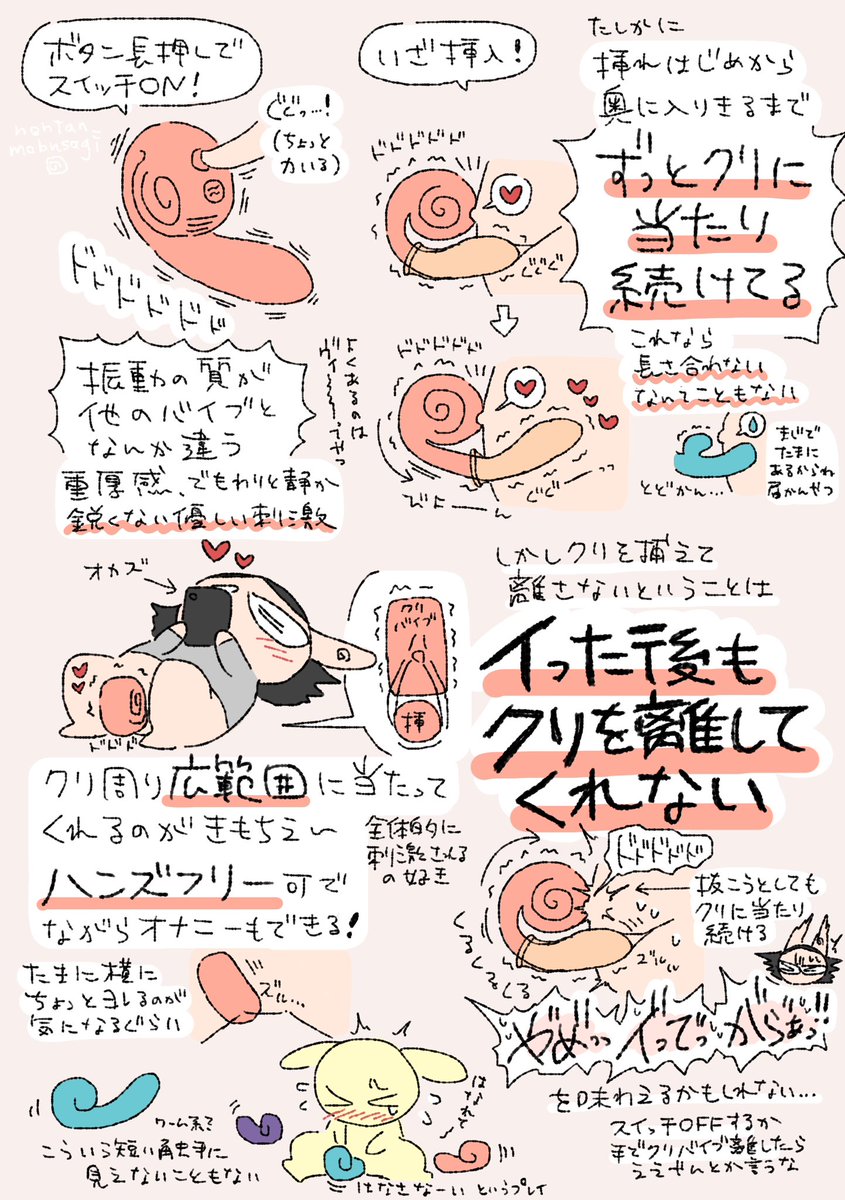 ボタン長押しで
スイッチON!
nontan
mobusagi
ぐぐっ…!
(ちょっと
力いる)
ドドドドドド
いざ挿入!
ドドドドド
ぐぐぐ
たしかに
挿れはじめから
奥に入りきるまで
ずっとクリに
当たり
続けてる
ドドドドド
びよーーん
ぐぐーーっ
これなら
長さ合わない
なんてこともない
とどかん…
まじで
たまに
あるからね
届かんやつ
振動の質が
他のバイブと
なんか違う
よくあるのは
ヴィ〜〜〜ってやつ
重厚感、でもわりと静か
鋭くない優しい刺激
オカズ
ドドド
クリ
バイブ
挿
しかしクリを捕えて
離さないということは
イった後も
クリを離して
くれない
クリ周り広範囲に当たって
くれるのがきもちえ〜
全体的に
刺激される
の好き
ハンズフリー可で
ながらオナニーもできる!
たまに横に
ちょっとヨレるのが
気になるぐらい
ズル…
ドドドドド
くるくるくる
ズルル
抜こうとしても
クリに当たり
続ける
やめ゛っっ イ゛っでっ がらぁっ!!
を味わえるかもしれない…
スイッチOFFするか
手でクリバイブ離したら
ええやんとか言うな
ワーム系で
こういう短い角虫米に
見えないこともない
はなれて
はなさなーい というプレイ